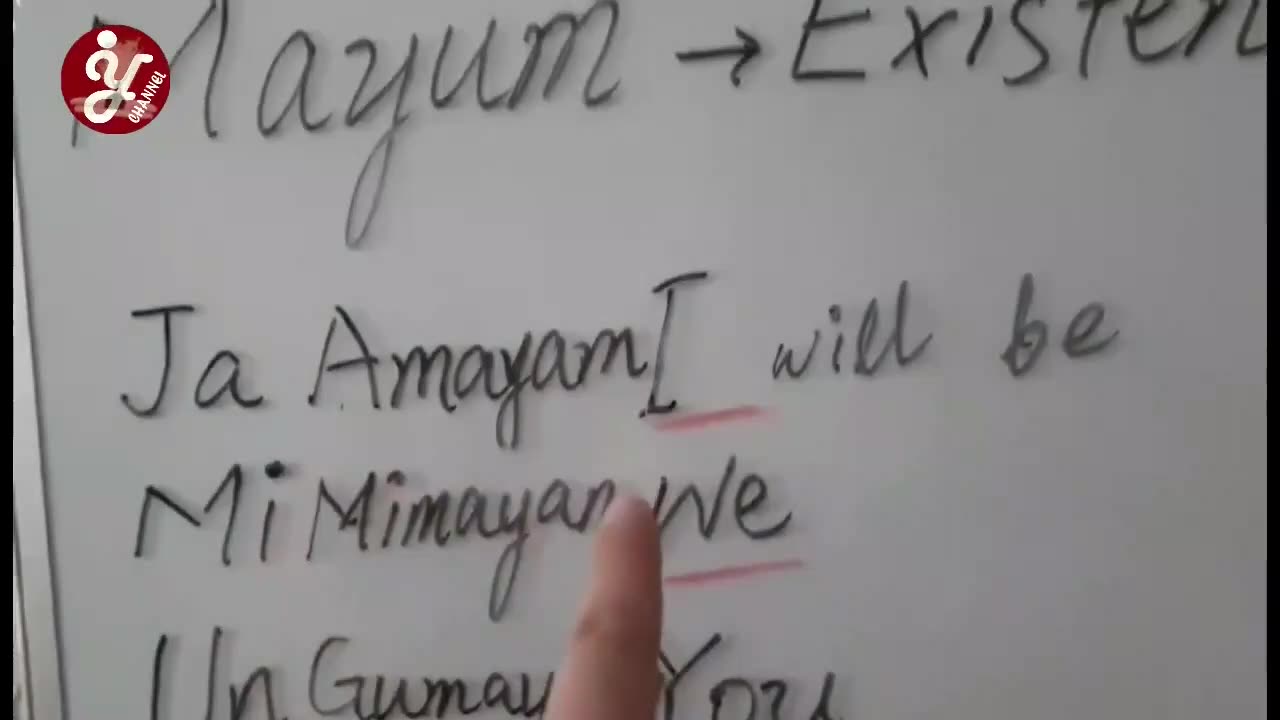 iY CHANNEL
Mayum → Existen
Ja Amayam I will be
Mi Mimayan We
Un Gumay You